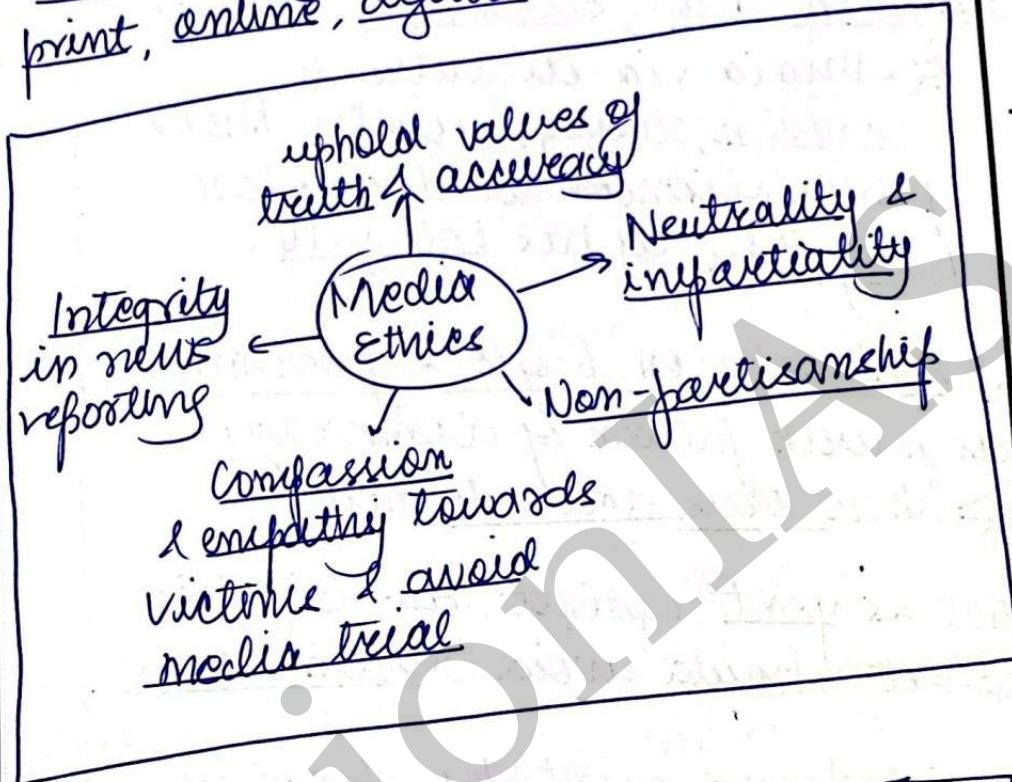 print, online,
uphold values of
truth & accuracy
Neutrality &
impartiality
Media
Ethics
Integrity
in news
reporting
Non-partisanship
Compassion
& empathy towards
victims & avoid
media trial
ionIAS